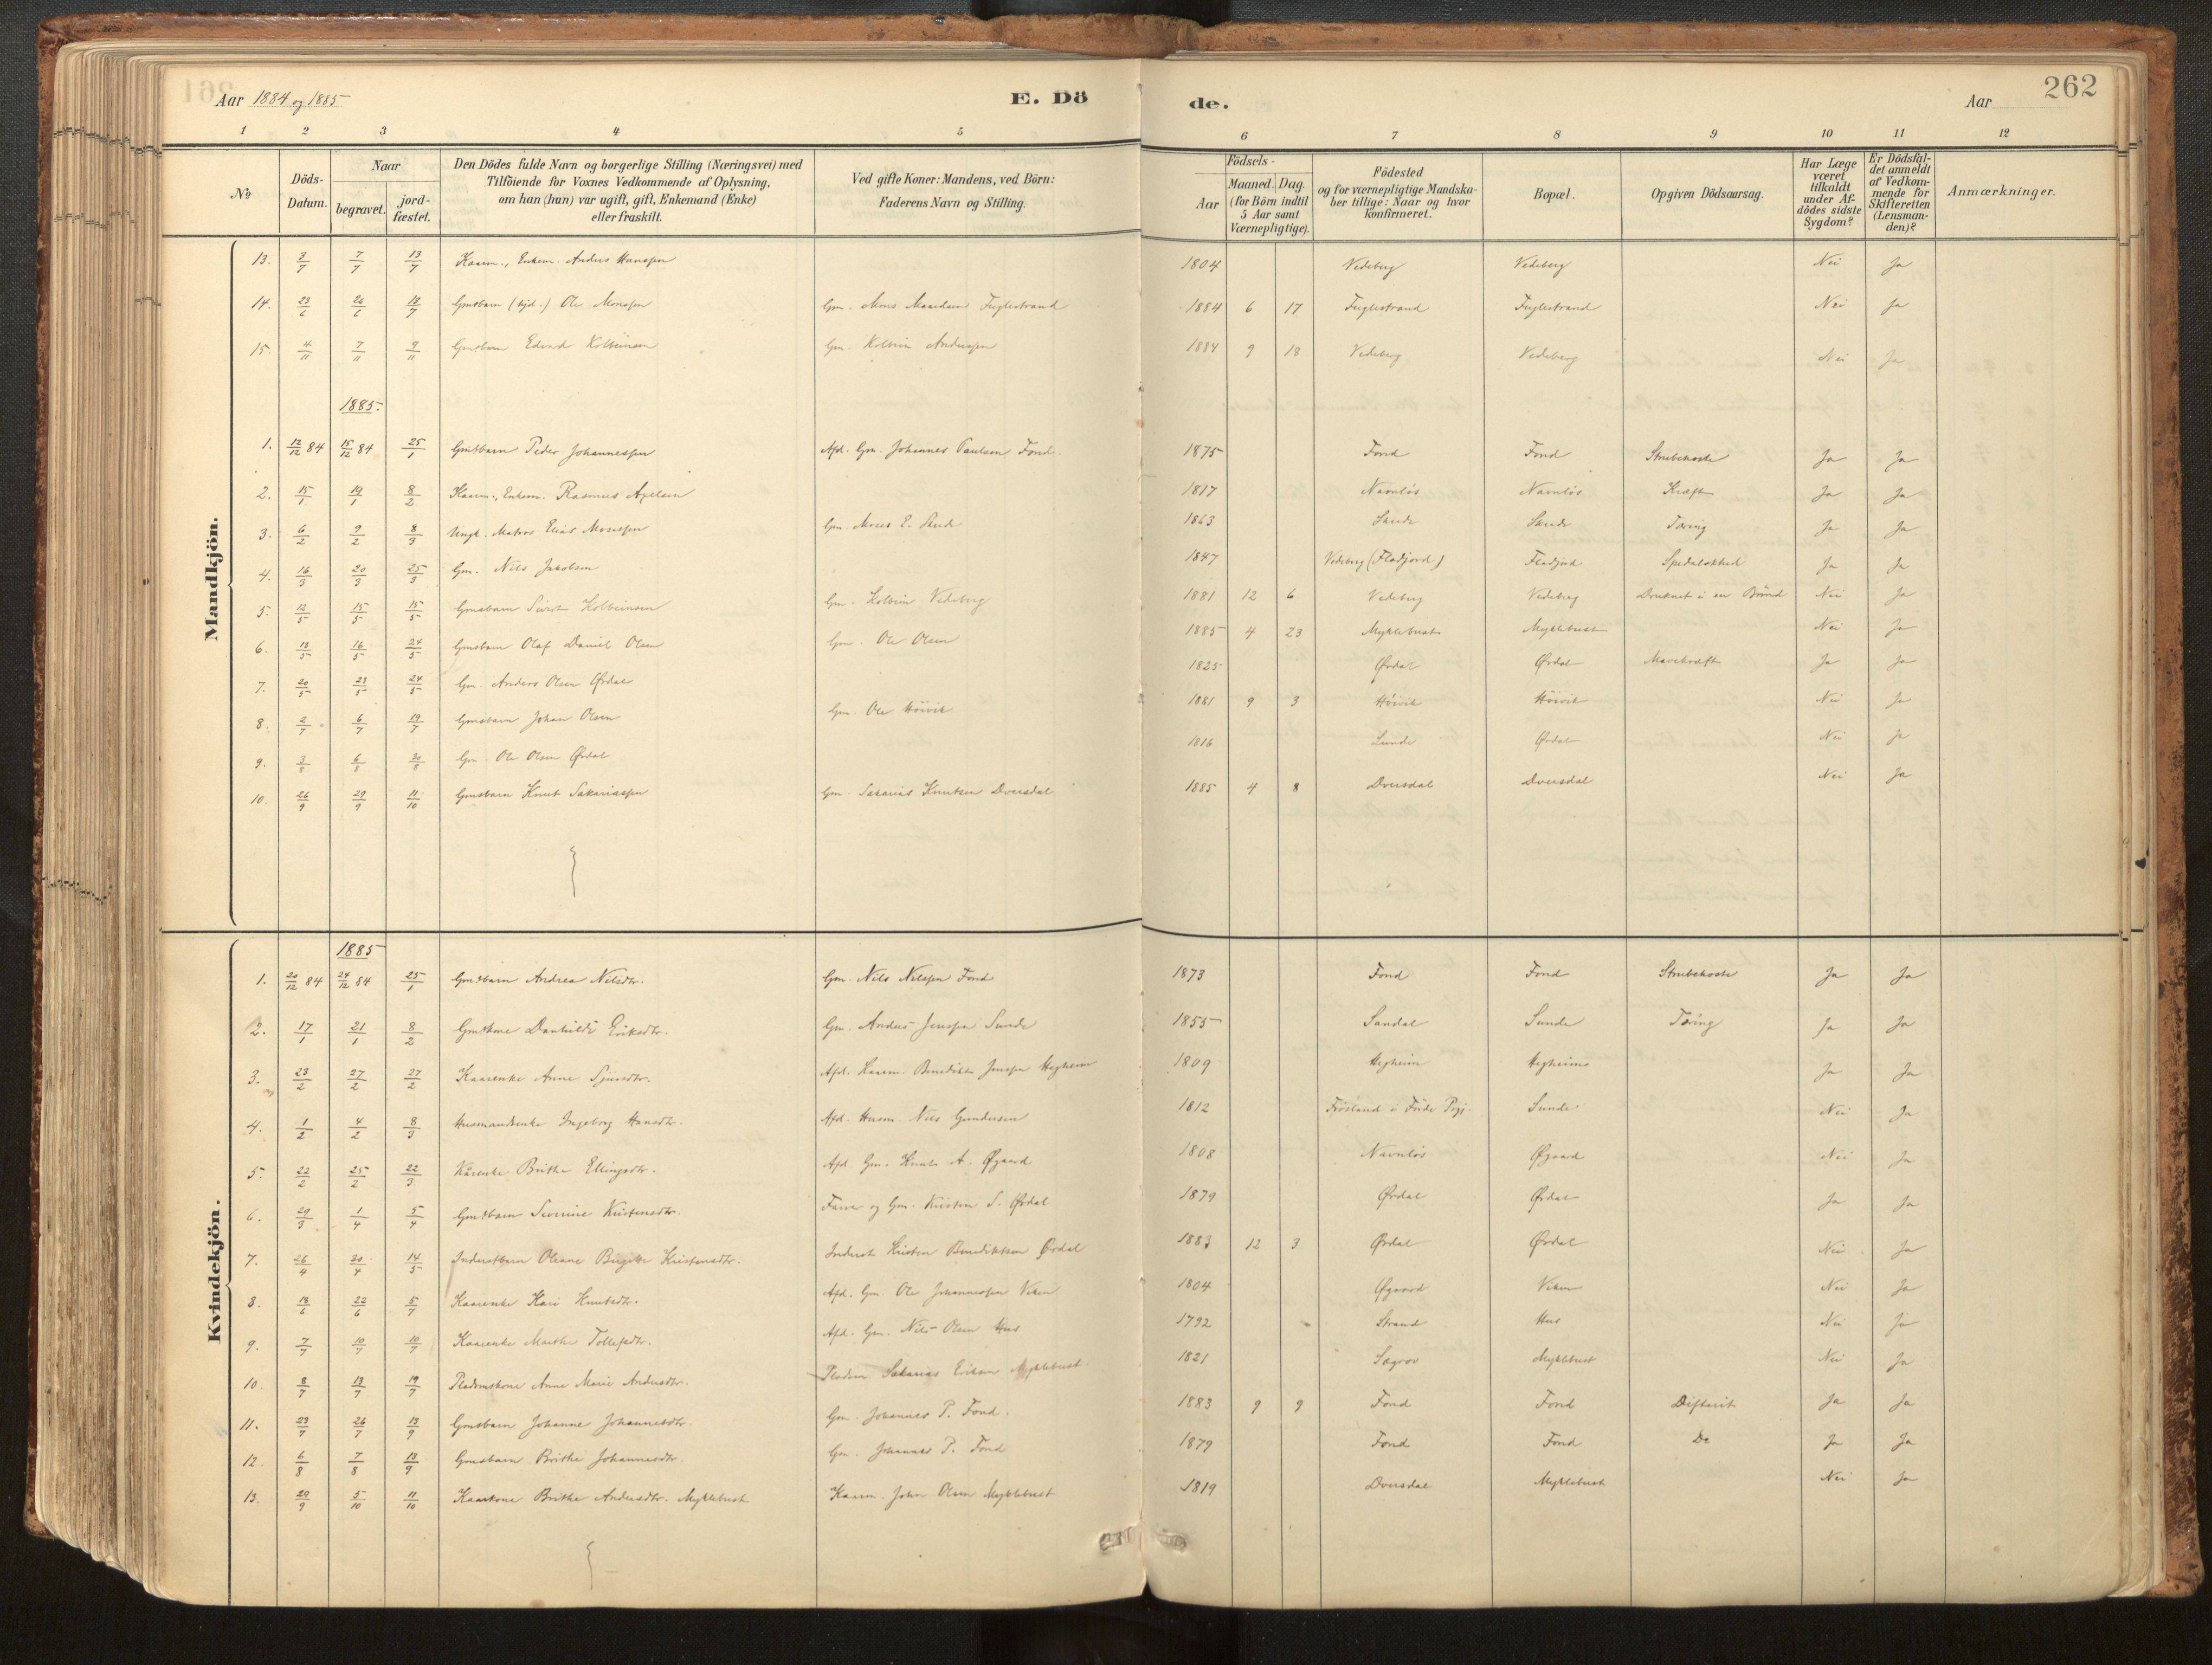 262
Aar 1884 og 1885 E. Dö de. Aar
1 2 3 4 5 6 7 8 9 10 11 12
No Döds-Datum. Naar begravet. jordfæstet. Den Dödes fulde Navn og borgerlige Stilling (Næringsvei) med Tilföiende for Voxnes Vedkommende af Oplysning, om han (hun) var ugift, gift, Enkemand (Enke) eller fraskilt. Ved gifte Koner: Mandens, ved Börn: Faderens Navn og Stilling. Födsels- Aar Maaned. Dag. (for Börn indtil 5 Aar samt Værnepligtige). Födested og for værnepligtige Mandskaber tillige: Naar og hvor Konfirmeret. Bopæl. Opgiven Dödsaarsag. Har Læge været tilkaldt under Afdödes sidste Sygdom? Er Dödsfaldet anmeldt af Vedkommende for Skifteretten (Lensmanden)? Anmærkninger.
Mandkjön.
13. 3/7 7/7 13/7 Kaarm., Enkem. Anders Hanssen 1804 Vedeberg Vedeberg Nei Ja
14. 23/6 26/6 13/7 Gmsbarn (hjd.) Ole Monssen Gm. Mons Fuglestrand 1884 6 17 Fuglestrand Fuglestrand Nei Ja
15. 4/11 7/11 9/11 Gmsbarn Edvard Kolbeinsen Gm. Kolbein Anderssen 1884 9 18 Vedeberg Vedeberg Nei Ja
1885.
1. 12/12 84 15/12 84 25/1 Gmsbarn Peder Johannessen Afd. Gm. Johannes Paulsen Fond. 1875 Fond Fond Strubehoste Ja Ja
2. 15/1 19/1 8/2 Kaarm., Enkem. Rasmus Axelsen 1817 Navnløs Navnløs Kræft Ja Ja
3. 6/2 9/2 8/3 Ungk. Matros Elias Mosessen Gm. Moses E. Sunde 1863 Sunde Sunde Tæring Ja Ja
4. 16/3 20/3 25/3 Gm. Nils Jakobsen 1847 Vedeberg (Fladjord) Fladjord Spedalskhed Ja Ja
5. 12/5 15/5 15/5 Gmsbarn Sivert Kolbeinsen Gm. Kolbein Vedeberg 1881 12 6 Vedeberg Vedeberg Druknet i en Brønd Nei Ja
6. 13/5 16/5 24/5 Gmsbarn Olaf Daniel Olsen Gm. Ole Olsen 1885 4 23 Myklebust Myklebust Nei Ja
7. 20/5 23/5 24/5 Gm. Anders Olsen Ørdal 1825 Ørdal Ørdal Mavekræft Ja Ja
8. 2/7 6/7 19/7 Gmsbarn Johan Olsen Gm. Ole Höivik 1881 9 3 Höivik Höivik Nei Ja
9. 3/8 6/8 30/8 Gm. Ole Olsen Ørdal 1816 Sunde Ørdal Nei Ja
10. 26/9 29/9 11/10 Gmsbarn Knut Sakariassen Gm. Sakarias Knutsen Dvergsdal 1885 4 8 Dvergsdal Dvergsdal Nei Ja
Kvindekjön.
1885
1. 20/12 84 24/12 84 25/1 Gmsbarn Andrea Nilsdtr. Gm. Nils Nilssen Fond 1873 Fond Fond Strubehoste Ja Ja
2. 17/1 21/1 8/2 Gmskone Danhilde Eriksdtr. Gm. Anders Jenssen Sunde 1855 Sandal Sunde Tæring Ja Ja
3. 23/2 27/2 27/2 Kaarenke Anne Sjursdtr. Afd. Kaarm. Benedikt Jenssen Hegheim 1809 Hegheim Hegheim Ja Ja
4. 1/2 4/2 8/3 Husmandsenke Ingeborg Hansdtr. Afd. Husm. Nils Gundersen 1812 i Førde Prgj. Sunde Nei Ja
5. 22/2 25/2 22/3 Kårenke Brithe Ellingsdtr. Afd. Gm. Knut A. Øgaard 1808 Navnløs Øgaard Nei Ja
6. 29/3 1/4 5/4 Gmsbarn Severine Kristensdtr. Farver og Gm. Kristen S. Ørdal 1879 Ørdal Ørdal Ja Ja
7. 26/4 30/4 14/5 Inderstbarn Oleane Birgitte Kristensdtr. Inderst Kristen Benediktsen Ørdal 1883 12 3 Ørdal Ørdal Nei Ja
8. 18/6 22/6 5/7 Kaarenke Kari Knutsdtr. Afd. Gm. Ole Johannessen Viken 1804 Øgaard Viken Nei Ja
9. 7/7 10/7 10/7 Kaarenke Marthe Tollefsdtr. Afd. Gm. Nils Olsen Hus 1792 Strand Hus Nei Ja
10. 8/7 13/7 19/7 Pladsmskone Anne Marie Andersdtr. Pladsm. Sakarias Eriksen Myklebust 1821 Sægrov Myklebust Nei Ja
11. 23/7 26/7 13/9 Gmsbarn Johanne Johannesdtr. Gm. Johannes P. Fond. 1883 9 9 Fond Fond Difterit Ja Ja
12. 6/8 7/8 13/9 Gmsbarn Brithe Johannesdtr. Gm. Johannes P. Fond 1879 Fond Fond Do Ja Ja
13. 29/9 5/10 11/10 Kaarkone Brithe Andersdtr. Myklebust Kaarm. John Olsen Myklebust 1819 Dvergsdal Myklebust Nei Ja